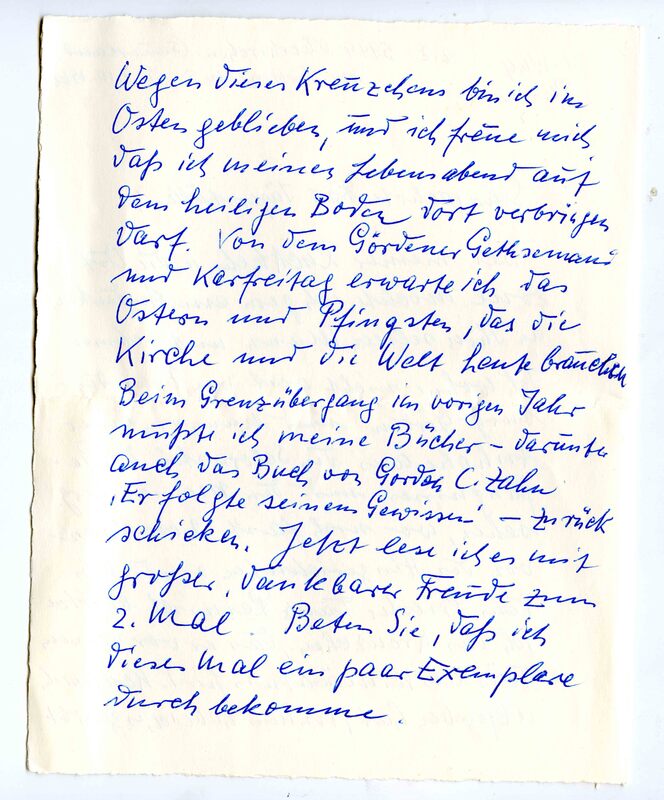 Wegen dieses Kreuzchens bin ich im
Osten geblieben, und ich freue mich
daß ich meinen Lebensabend auf
dem heiligen Boden dort verbringen
darf. Von dem Gördener Gethsemani
und Karfreitag erwarte ich das
Ostern und Pfingsten, das die
Kirche und die Welt heute brauchen
Beim Grenzübergang im vorigen Jahr
mußte ich meine Bücher – darunter
auch das Buch von Gordon C. Zahn
'Er folgte seinem Gewissen' – zurück
schicken. Jetzt lese ich es mit
großer, dankbarer Freude zum
2. Mal. Beten Sie, daß ich
dieses Mal ein paar Exemplare
durch bekomme.